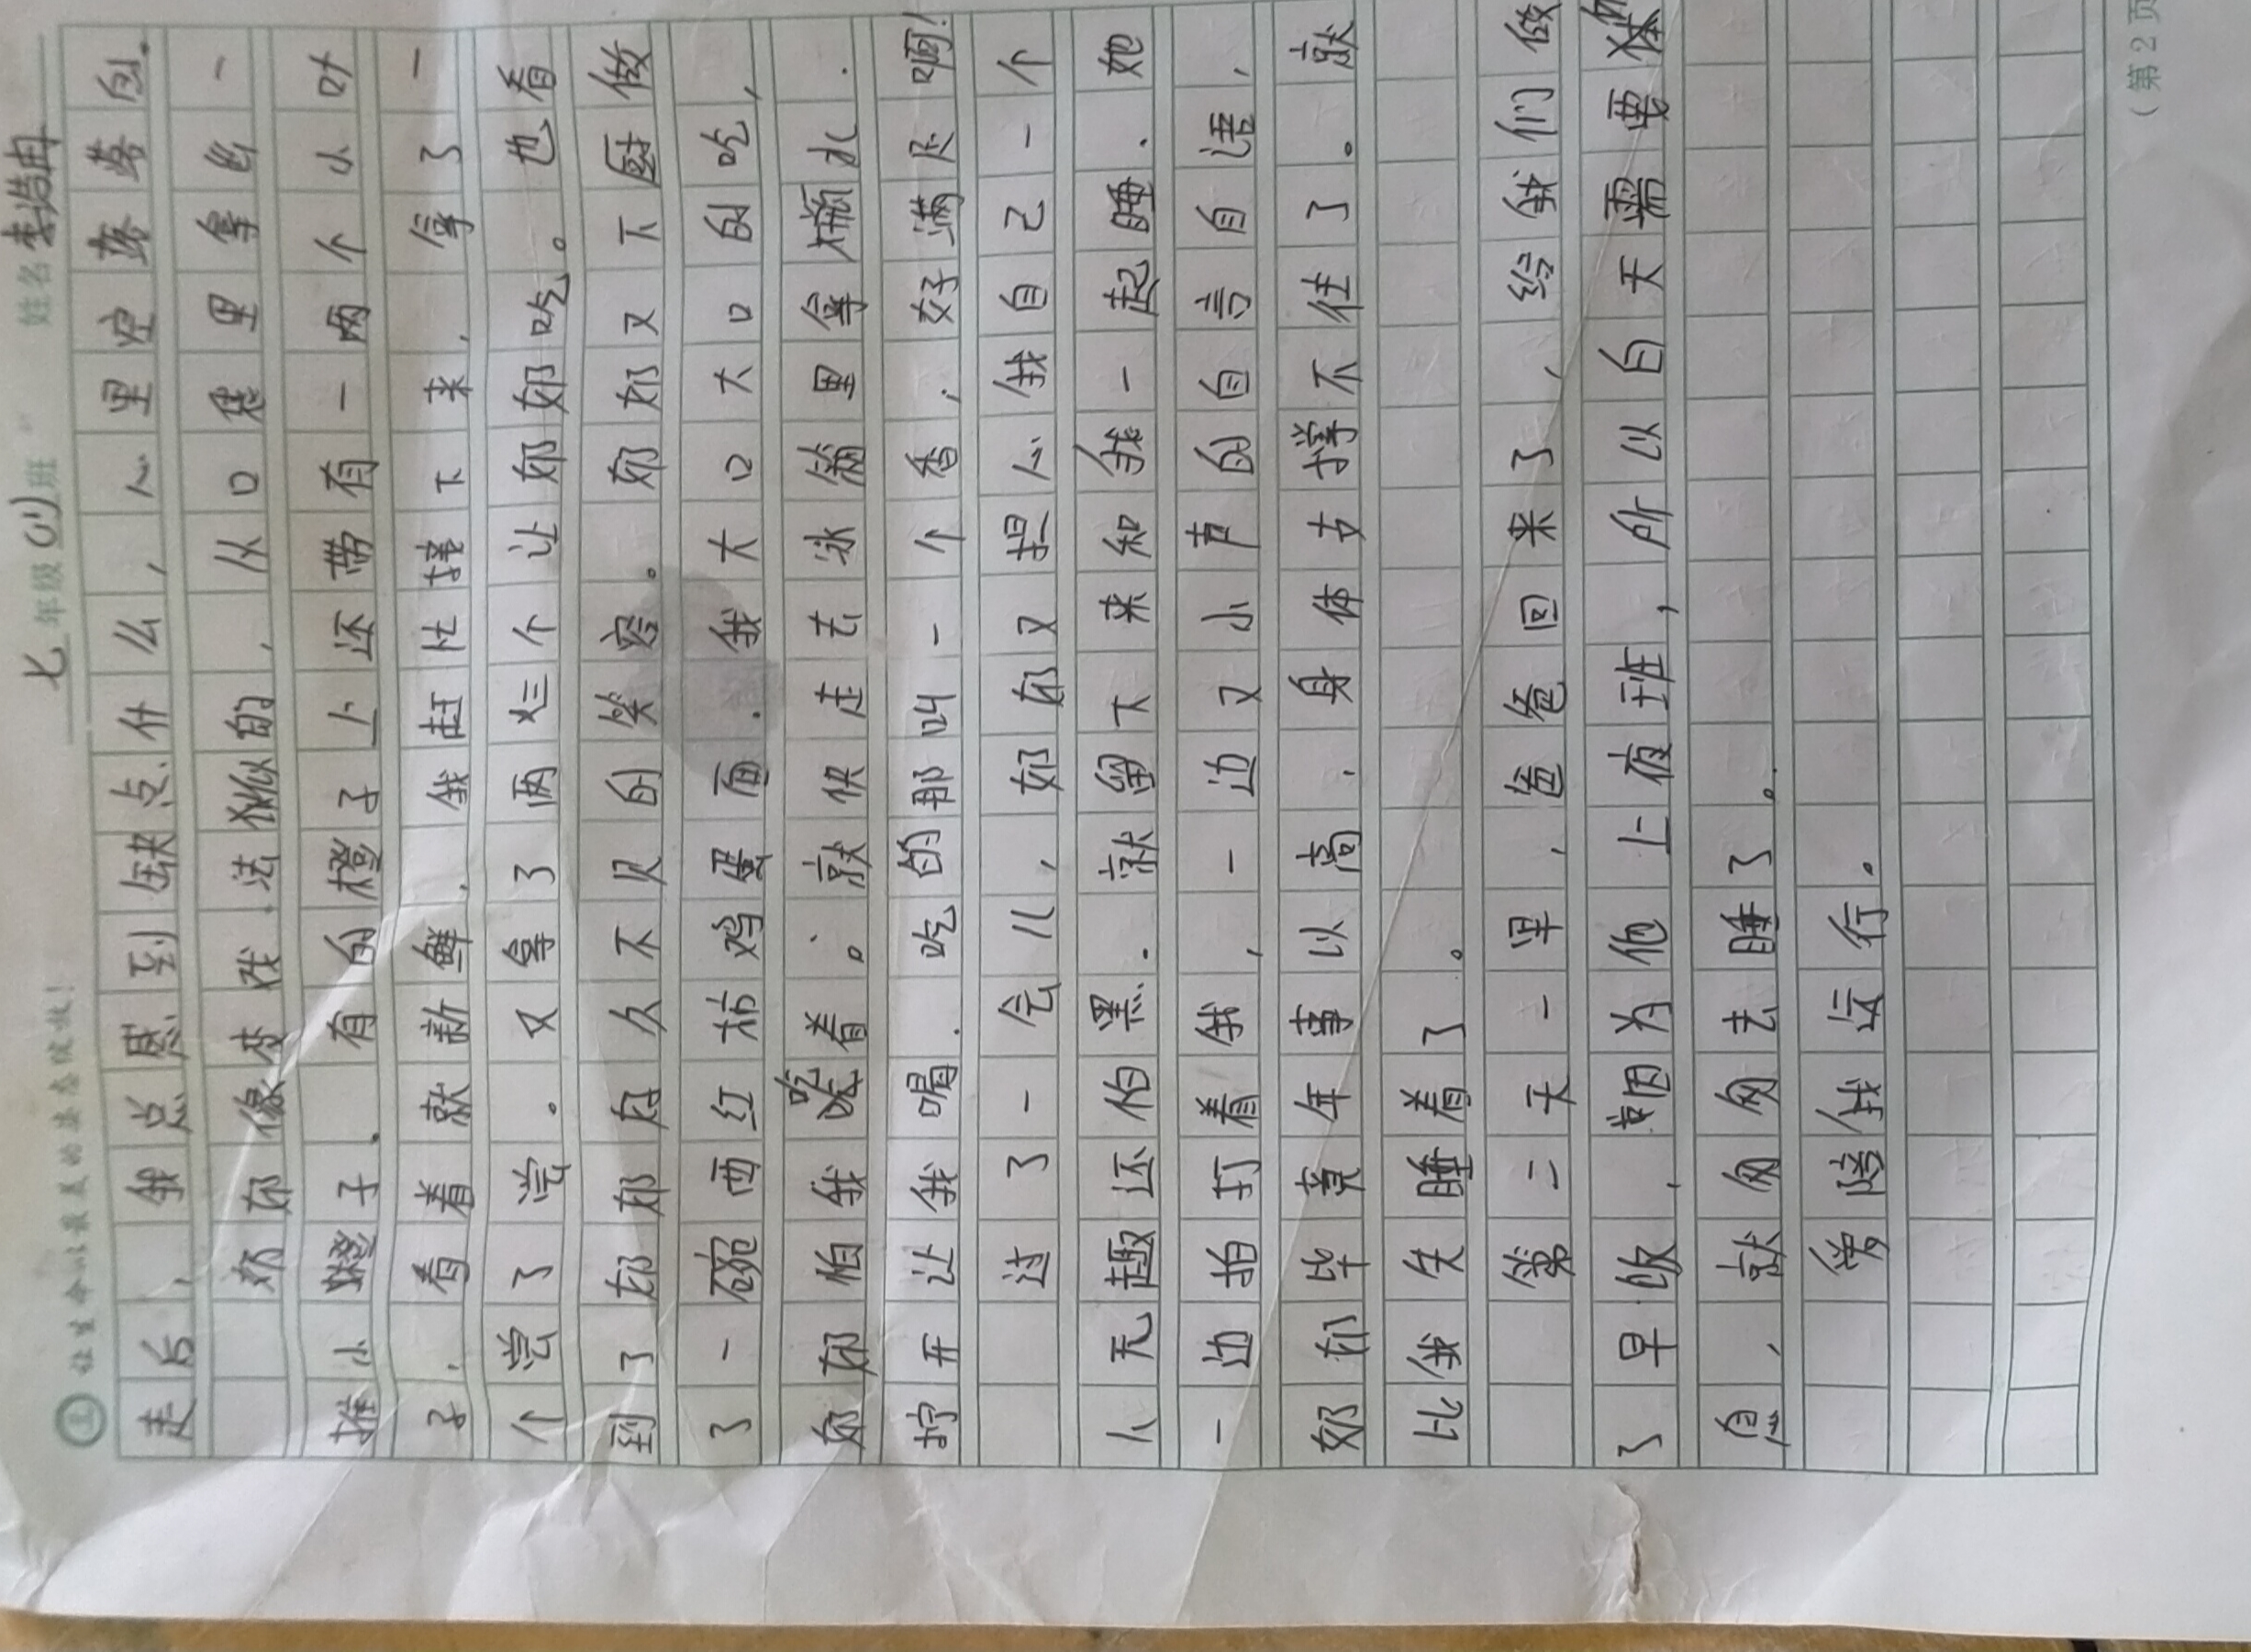 让生命以最美的姿态绽放！ 七年级(1)班 姓名李浩冉
走后，我总感到缺点什么，心里空落落的。
奶奶像变戏法似的，从口袋里拿出一
推小橙子。有的橙子上还带有一两个小叶
子，看着就新鲜，我赶忙接下来，拿了一
个尝了尝。又拿了两烂三个让奶奶吃。也看
到了奶奶的久不见的笑容。奶奶又下厨做
了一碗西红柿鸡蛋面，我大口大口的吃，
奶奶怕我吃着。就快走去冰箱里拿瓶水，
拧开让我喝，吃的那叫一个香，好满足啊！
过了一会儿，奶奶又担心我自己一个
人无趣还怕黑，就留下来和我一起睡，她
一边拍打着我，一边又小声的自言自语，
奶奶毕竟年事以高，身体支撑不住了。就
比我先睡着了。
第二天一早，爸爸回来了，给我们做
了早饭，因为他上夜班，所以白天需要休
息，就匆匆去睡了。
爱陪我远行。
（第2页